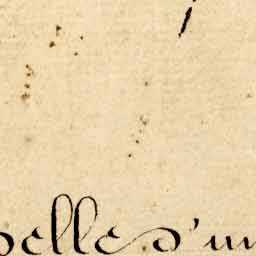 pelle d'un